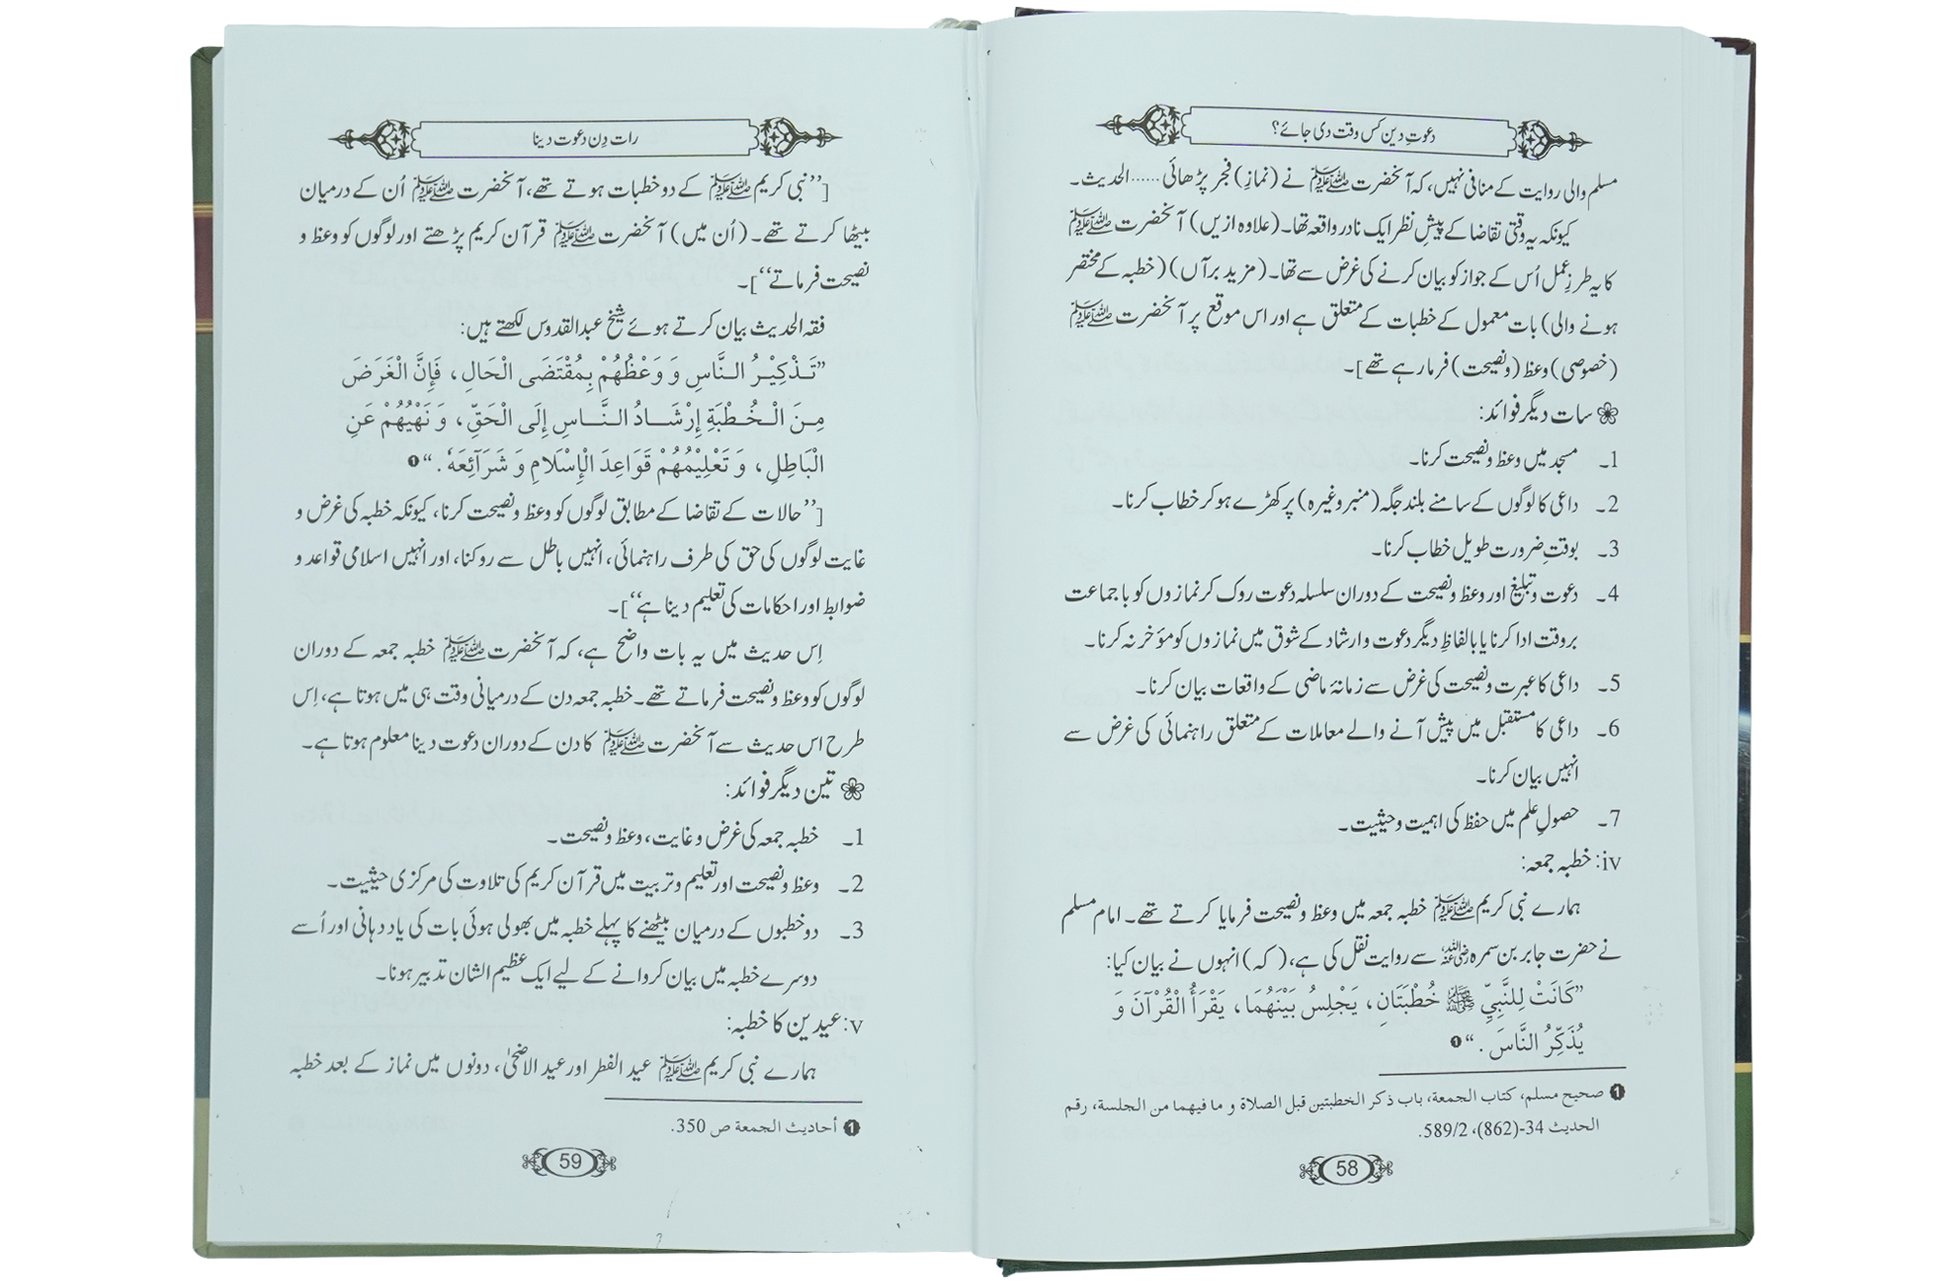 دعوتِ دین کس وقت دی جائے؟
مسلم والی روایت کے منافی نہیں، کہ آنحضرت ﷺ نے (نمازِ) فجر پڑھائی ...... الحدیث۔
کیونکہ یہ وقتی تقاضا کے پیشِ نظر ایک نادر واقعہ تھا۔ (علاوہ ازیں) آنحضرت ﷺ
کا یہ طرزِ عمل اُس کے جواز کو بیان کرنے کی غرض سے تھا۔ (مزید برآں) (خطبہ کے مختصر
ہونے والی) بات معمول کے خطبات کے متعلق ہے اور اس موقع پر آنحضرت ﷺ
(خصوصی) وعظ (و نصیحت) فرما رہے تھے]۔
❀ سات دیگر فوائد:
1۔ مسجد میں وعظ و نصیحت کرنا۔
2۔ داعی کا لوگوں کے سامنے بلند جگہ (منبر وغیرہ) پر کھڑے ہو کر خطاب کرنا۔
3۔ بوقتِ ضرورت طویل خطاب کرنا۔
4۔ دعوت و تبلیغ اور وعظ و نصیحت کے دوران سلسلہ دعوت روک کر نمازوں کو باجماعت
بروقت ادا کرنا یا بالفاظِ دیگر دعوت و ارشاد کے شوق میں نمازوں کو مؤخر نہ کرنا۔
5۔ داعی کا عبرت و نصیحت کی غرض سے زمانۂ ماضی کے واقعات بیان کرنا۔
6۔ داعی کا مستقبل میں پیش آنے والے معاملات کے متعلق راہنمائی کی غرض سے
انہیں بیان کرنا۔
7۔ حصولِ علم میں حفظ کی اہمیت و حیثیت۔
iv: خطبہ جمعہ:
ہمارے نبی کریم ﷺ خطبہ جمعہ میں وعظ و نصیحت فرمایا کرتے تھے۔ امام مسلم
نے حضرت جابر بن سمرہ رضی اللہ عنہ سے روایت نقل کی ہے، (کہ) انہوں نے بیان کیا:
”كَانَتْ لِلنَّبِيِّ ﷺ خُطْبَتَانِ، يَجْلِسُ بَيْنَهُمَا، يَقْرَأُ الْقُرْآنَ وَ
يُذَكِّرُ النَّاسَ.“ ❶
❶ صحيح مسلم، كتاب الجمعة، باب ذكر الخطبتين قبل الصلاة و ما فيهما من الجلسة، رقم
الحديث 34-(862)، 589/2.
58
رات دِن دعوت دینا
[’’نبی کریم ﷺ کے دو خطبات ہوتے تھے، آنحضرت ﷺ اُن کے درمیان
بیٹھا کرتے تھے۔ (اُن میں) آنحضرت ﷺ قرآن کریم پڑھتے اور لوگوں کو وعظ و
نصیحت فرماتے‘‘]۔
فقہ الحدیث بیان کرتے ہوئے شیخ عبدالقدوس لکھتے ہیں:
”تَذْكِيْرُ النَّاسِ وَ وَعْظُهُمْ بِمُقْتَضَى الْحَالِ، فَإِنَّ الْغَرَضَ
مِنَ الْخُطْبَةِ إِرْشَادُ النَّاسِ إِلَى الْحَقِّ، وَ نَهْيُهُمْ عَنِ
الْبَاطِلِ، وَ تَعْلِيْمُهُمْ قَوَاعِدَ الْإِسْلَامِ وَ شَرَآئِعَهٗ.“ ❶
[’’حالات کے تقاضا کے مطابق لوگوں کو وعظ و نصیحت کرنا، کیونکہ خطبہ کی غرض و
غایت لوگوں کی حق کی طرف راہنمائی، انہیں باطل سے روکنا، اور انہیں اسلامی قواعد و
ضوابط اور احکامات کی تعلیم دینا ہے‘‘]۔
اِس حدیث میں یہ بات واضح ہے، کہ آنحضرت ﷺ خطبہ جمعہ کے دوران
لوگوں کو وعظ و نصیحت فرماتے تھے۔ خطبہ جمعہ دن کے درمیانی وقت ہی میں ہوتا ہے، اِس
طرح اس حدیث سے آنحضرت ﷺ کا دن کے دوران دعوت دینا معلوم ہوتا ہے۔
❀ تین دیگر فوائد:
1۔ خطبہ جمعہ کی غرض و غایت، وعظ و نصیحت۔
2۔ وعظ و نصیحت اور تعلیم و تربیت میں قرآن کریم کی تلاوت کی مرکزی حیثیت۔
3۔ دو خطبوں کے درمیان بیٹھنے کا پہلے خطبہ میں بھولی ہوئی بات کی یاد دہانی اور اُسے
دوسرے خطبہ میں بیان کروانے کے لیے ایک عظیم الشان تدبیر ہونا۔
v: عیدین کا خطبہ:
ہمارے نبی کریم ﷺ عید الفطر اور عید الاضحیٰ، دونوں میں نماز کے بعد خطبہ
❶ أحاديث الجمعة ص 350.
59